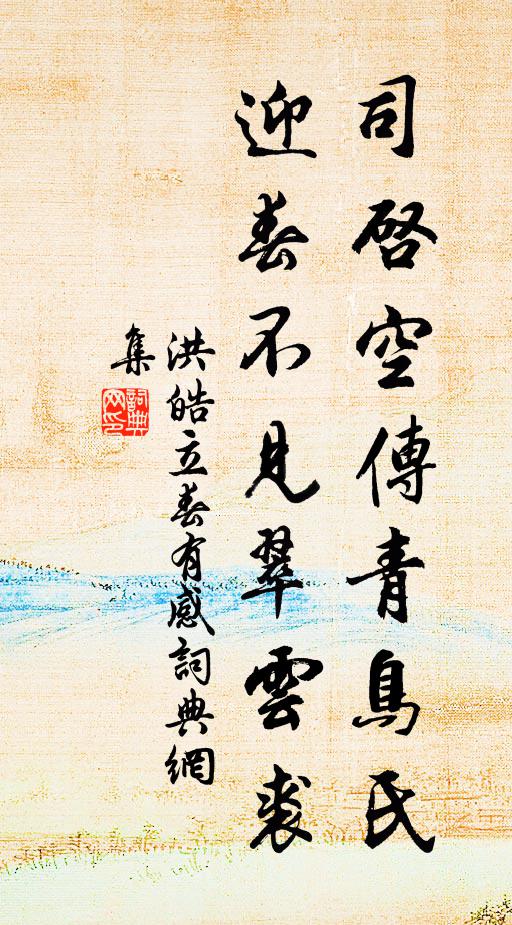 司啓空傳青鳥氏
迎春不見翠雲裘
洪皓立春有感詞典網
集
詞典
网印